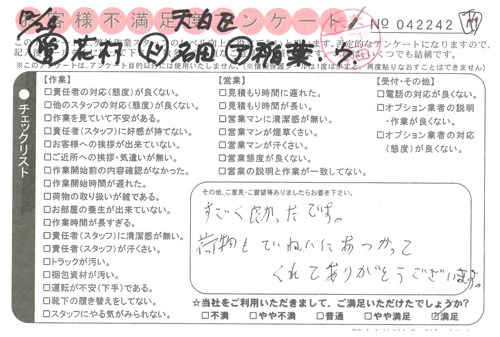 お客様不満足度アンケート
天白区
No 042242
花村 ド 名月 ア 稲葉、ク
チェックリスト
【作業】
□責任者の対応(態度)が良くない。
□他のスタッフの対応(態度)が良くない。
□作業を見ていて不安がある。
□責任者(スタッフ)に好感が持てない。
□お客様への挨拶が出来ていない。
□ご近所への挨拶・気遣いが無い。
□作業開始前の内容確認がなかった。
□作業開始時間が遅れた。
□荷物の取り扱いが雑である。
□お部屋の養生が出来ていない。
□作業時間が長すぎる。
□責任者(スタッフ)に清潔感が無い。
□責任者(スタッフ)が汗くさい。
□トラックが汚い。
□梱包資材が汚い。
□運転が不安(下手)である。
□靴下の履き替えをしてない。
□スタッフにやる気がみられない。
【営業】
□見積もり時間に遅れた。
□見積もり時間が長い。
□営業マンに清潔感が無い。
□営業マンが煙草くさい。
□営業マンが汗くさい。
□営業態度が良くない。
□営業の説明と作業が一致してない。
【受付・その他】
□電話の対応が良くない。
□オプション業者の説明
・作業が良くない。
□オプション業者の対応
(態度)が良くない。
その他、ご意見・ご要望等ありましたらお書き下さい。
すごく良かったです。
荷物もていねいにあつかって
くれてありがとうございます。
☆当社をご利用いただきまして、ご満足いただけたでしょうか?
□不満 □やや不満 □普通 □やや満足 ☑満足